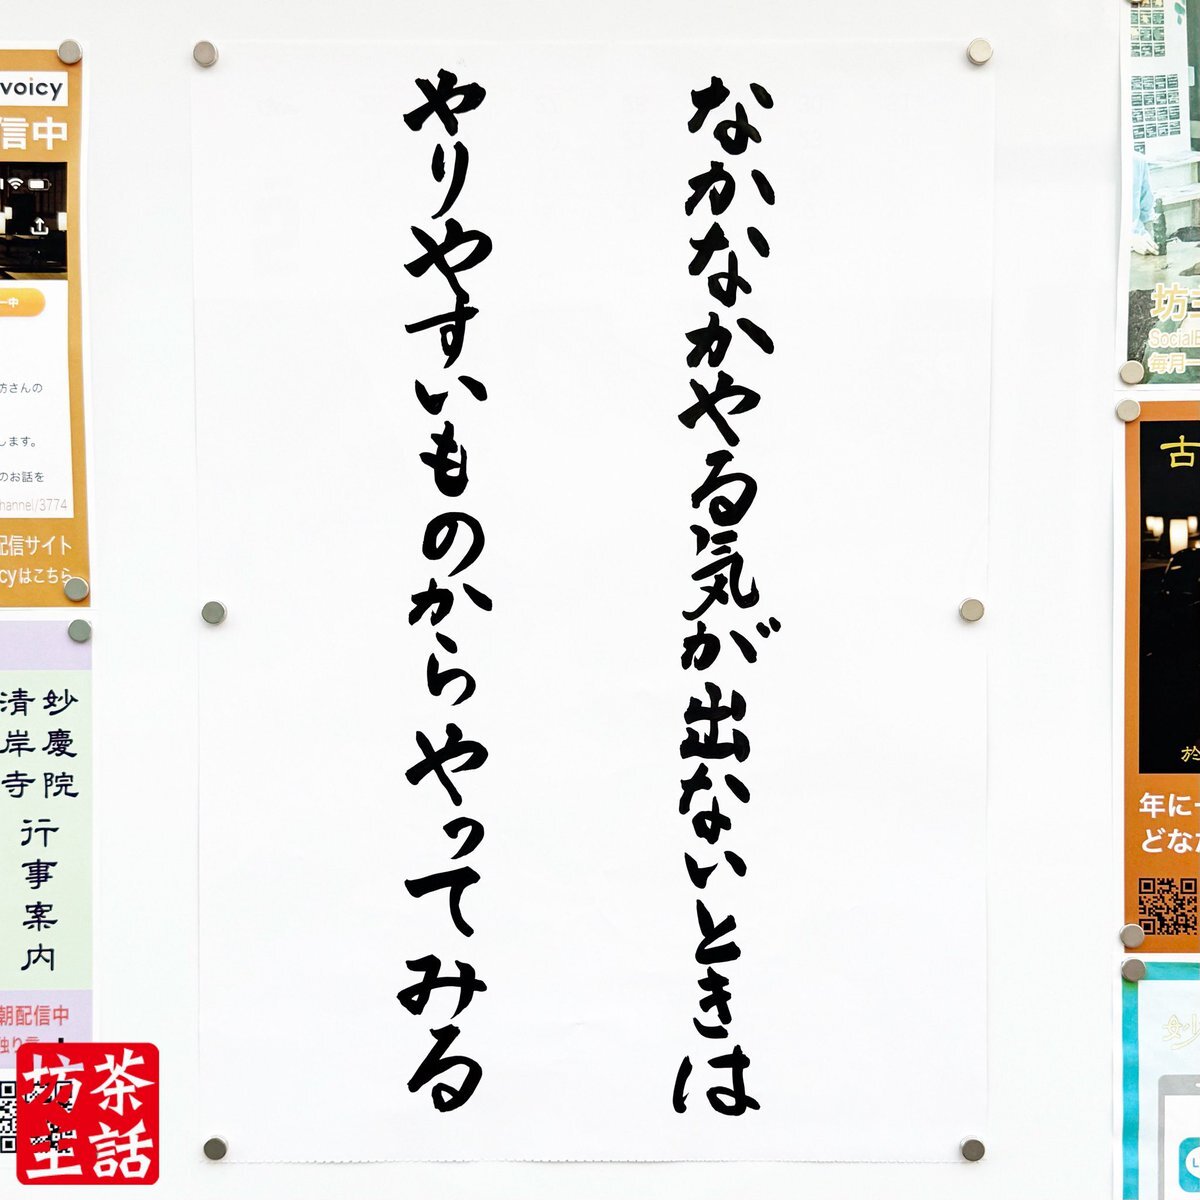 なかなかやる気が出ないときは
やりやすいものからやってみる
voicy
信中
坊さんの
します。
のお話を
hannel/3774
配信サイト
cyはこちら
妙慶院
清岸寺
行事案内
朝配信中
独り言
茶話
坊主
坊主
SocialB
毎月一
古
於
年に一
どなた